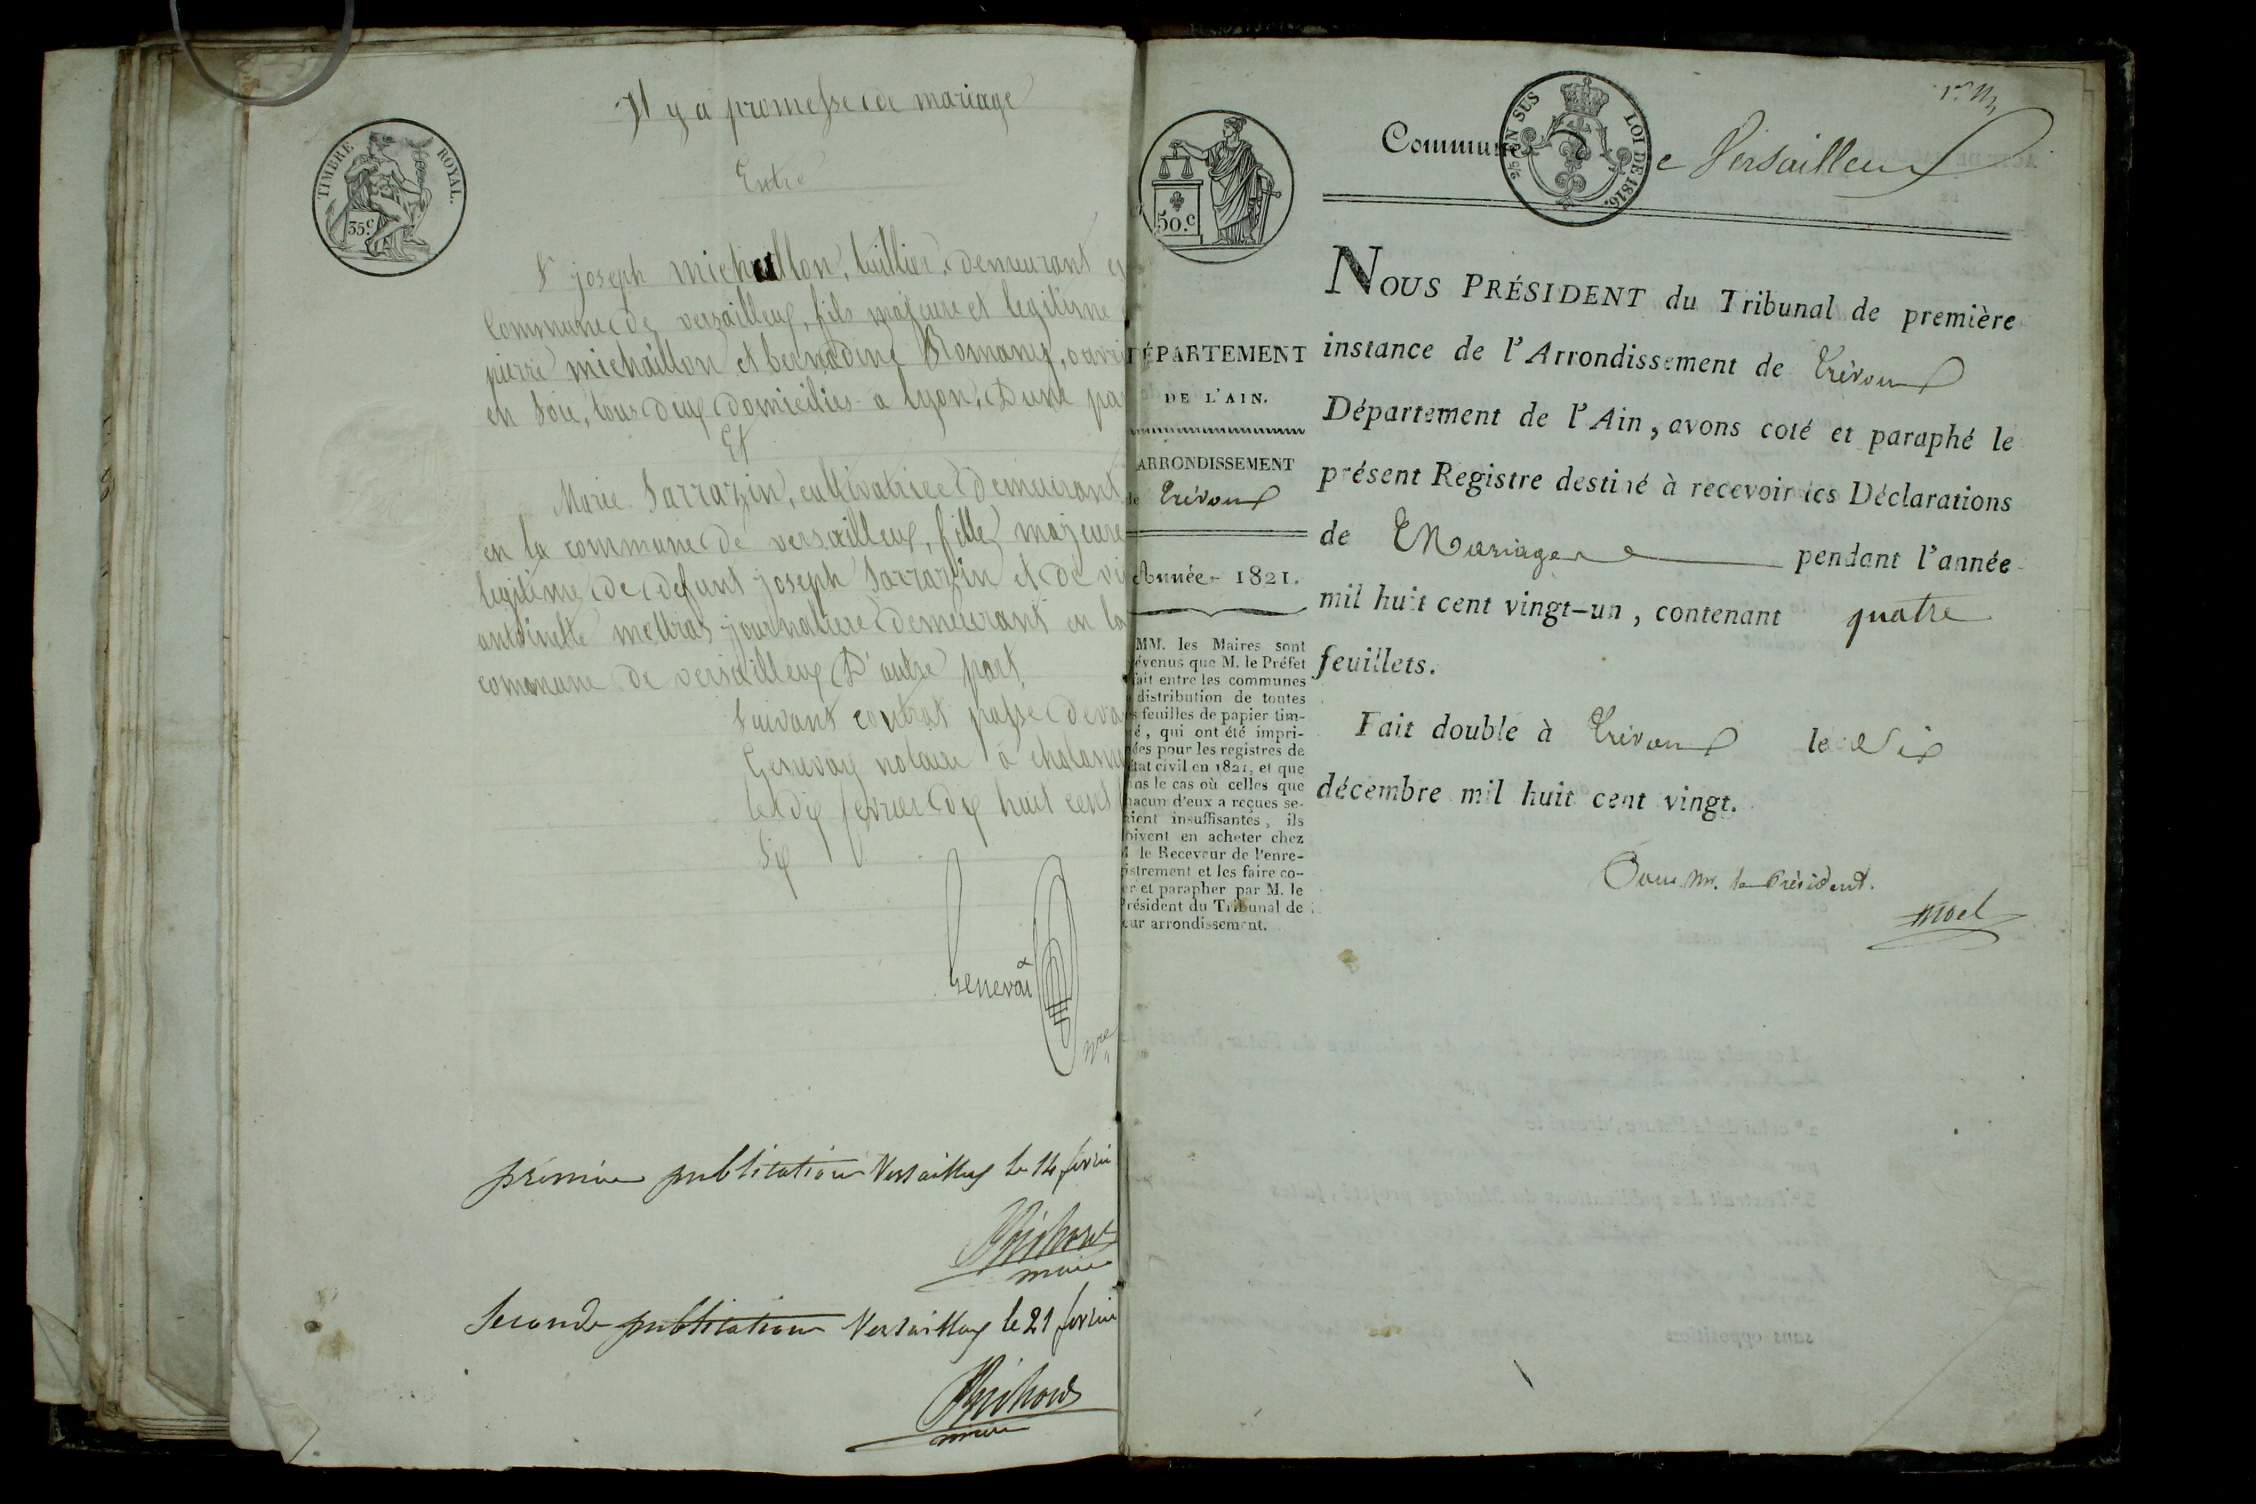 Il y a promesse de mariage
Entre
TIMBRE ROYAL.
35.c
Sr joseph michallon, tuillier, demeurant en
Commune de versailleux, fils majeure et legitime
pierre michaillon et bernadine Romany, ouvri
en soie, tous deux domiciliés a lyon, D'une par
Et
Marie Sarrazin, cultivatrice demeurant
en la commune de versailleux, fille majeure
legitime de defunt joseph Sarrazin et de vi
antoinette mettras journaliere demeurant en la
commune de versailleux D'autre part
Suivant contrat passé deva
Genevay notaire à chalam
le dix fevrier dix huit cent
Six
Genevai
nre
première publication Versailleux le 14 fevrie
maire
Seconde publication Versailleux le 21 fevrie
maire
50.c
2/5 EN SUS LOI DE 1816.
Commune de Versailleux
DÉPARTEMENT
DE L'AIN.
ARRONDISSEMENT
de Trévoux
Année 1821.
MM. les Maires sont
évenus que M. le Préfet
fait entre les communes
distribution de toutes
s feuilles de papier tim-
é, qui ont été impri-
ées pour les registres de
état civil en 1821, et que
ns le cas où celles que
hacun d'eux a reçues se-
aient insuffisantes, ils
oivent en acheter chez
le Receveur de l'enre-
istrement et les faire co-
er et parapher par M. le
Président du Tribunal de
eur arrondissement.
NOUS PRÉSIDENT du Tribunal de première
instance de l'Arrondissement de Trévoux
Département de l'Ain, avons coté et paraphé le
présent Registre destiné à recevoir les Déclarations
de Mariages pendant l'année
mil huit cent vingt-un, contenant quatre
feuillets.
Fait double à Trévoux le Six
décembre mil huit cent vingt.
Pour Mr. le Président.
Noel